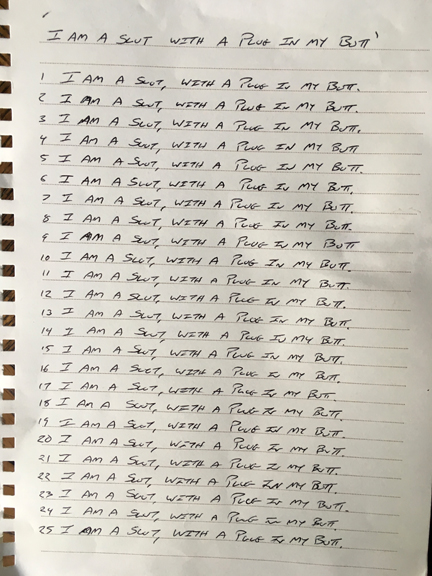 I AM A SLUT WITH A PLUG IN MY BUTT'
1 I AM A SLUT, WITH A PLUG IN MY BUTT.
2 I AM A SLUT, WITH A PLUG IN MY BUTT.
3 I AM A SLUT, WITH A PLUG IN MY BUTT.
4 I AM A SLUT, WITH A PLUG IN MY BUTT
5 I AM A SLUT, WITH A PLUG IN MY BUTT.
6 I AM A SLUT, WITH A PLUG IN MY BUTT.
7 I AM A SLUT, WITH A PLUG IN MY BUTT.
8 I AM A SLUT, WITH A PLUG IN MY BUTT.
9 I AM A SLUT, WITH A PLUG IN MY BUTT
10 I AM A SLUT, WITH A PLUG IN MY BUTT.
11 I AM A SLUT, WITH A PLUG IN MY BUTT.
12 I AM A SLUT, WITH A PLUG IN MY BUTT.
13 I AM A SLUT, WITH A PLUG IN MY BUTT.
14 I AM A SLUT, WITH A PLUG IN MY BUTT.
15 I AM A SLUT, WITH A PLUG IN MY BUTT.
16 I AM A SLUT, WITH A PLUG IN MY BUTT.
17 I AM A SLUT, WITH A PLUG IN MY BUTT.
18 I AM A SLUT, WITH A PLUG IN MY BUTT.
19 I AM A SLUT, WITH A PLUG IN MY BUTT.
20 I AM A SLUT, WITH A PLUG IN MY BUTT.
21 I AM A SLUT, WITH A PLUG IN MY BUTT.
22 I AM A SLUT, WITH A PLUG IN MY BUTT.
23 I AM A SLUT, WITH A PLUG IN MY BUTT.
24 I AM A SLUT, WITH A PLUG IN MY BUTT.
25 I AM A SLUT, WITH A PLUG IN MY BUTT.